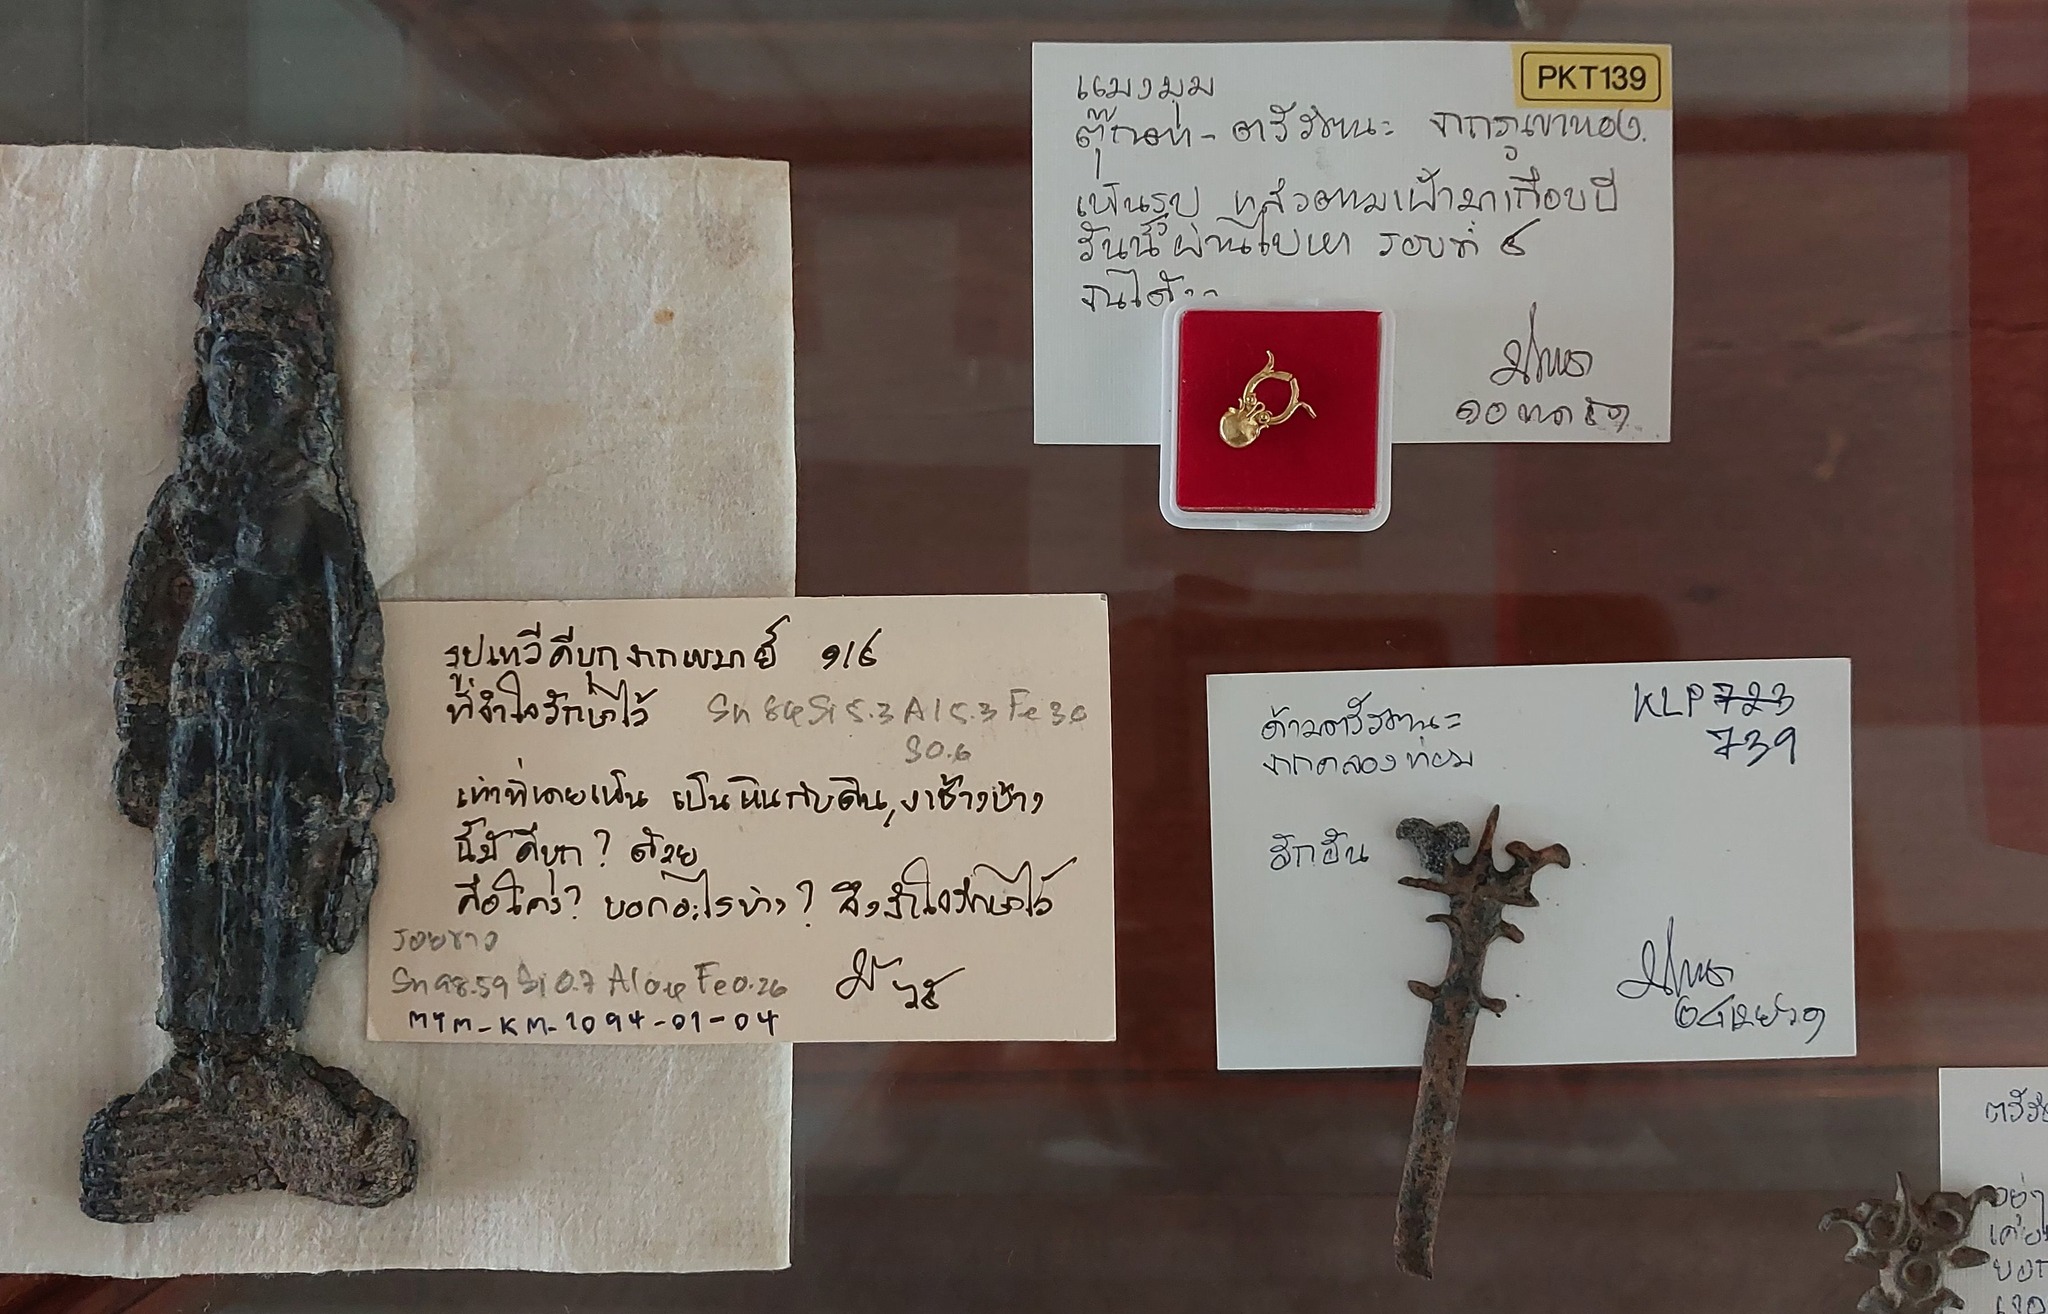 รูปเทวีดีบุกจากเขมายี้ ๑/๕
ที่จำใจรักษาไว้ Sn 84 Si 5.3 Al 5.3 Fe 3.0
S 0.6
เท่าที่เคยเห็น เป็นหินกับดิน, งาช้างบ้าง
นี้มีดีบุก? ด้วย
คือใคร? บอกอะไรบ้าง? จึงจำใจรักษาไว้
รอยขาว
Sn 98.59 Si 0.7 Al 0.4 Fe 0.26
MYM-KM-1094-01-04
PKT139
แมงมุม
ตุ๊กตา - ตรีรัตนะ จากภูเขาทอง.
เห็นรูป แล้วตามเฝ้ามาเกือบปี
วันนี้ผ่านไปหา รอบที่ ๕
จนได้
บัญชา
๑๐ ๖๑
KLP 723
739
ด้ามตรีรัตนะ
จากคลองท่อม
อีกอัน
บัญชา
๖๑
ตรีรั
อย่า
เคย
บอก